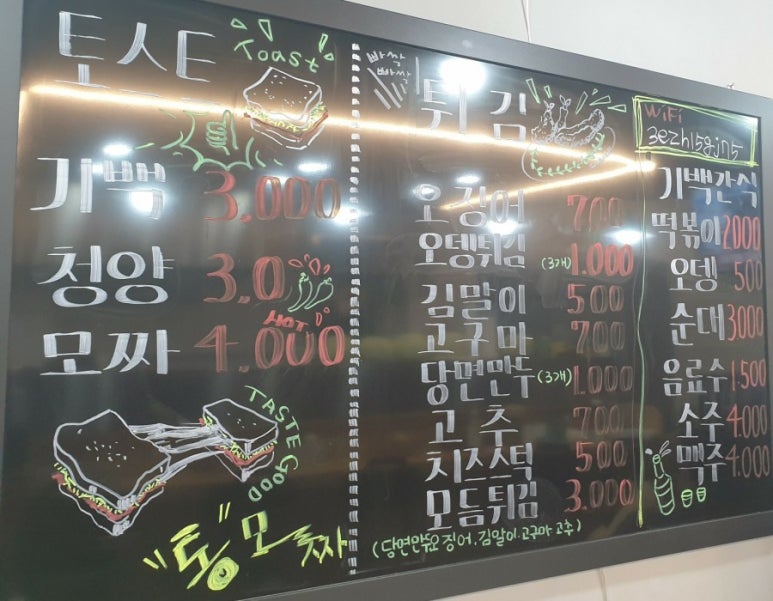 토스트 Toast
기백 3,000
청양 3.0
HOT
모짜 4.000
TASTE GOOD
"통"모짜
빠싹
빠쌀
튀김
오징어 700
오뎅튀김 (3개) 1.000
김말이 500
고구마 700
당면만두 (3개) 1.000
고추 700
치즈스턱 500
모듬튀김 3.000
(당면만두오징어.김말이.고구마고추)
WiFi
기백간식
떡볶이 2000
오뎅 500
순대 3000
음료수 1.500
소주 4.000
맥주 4.000